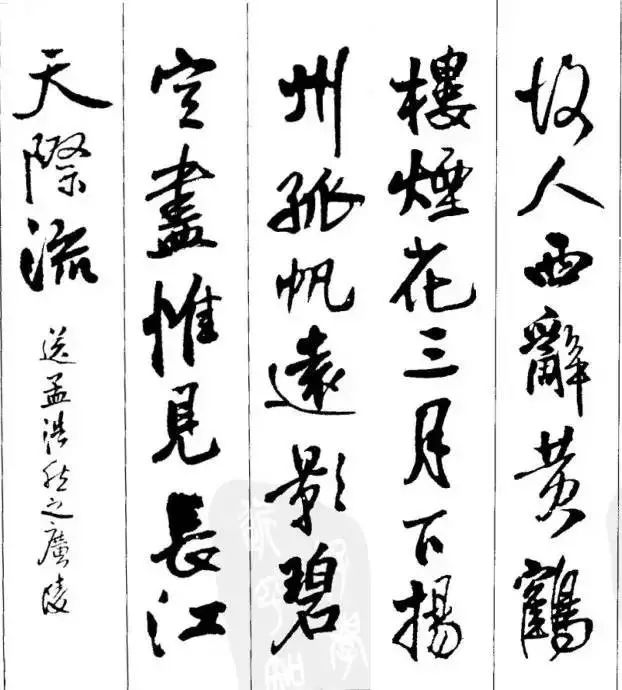 故人西辭黄鶴
樓煙花三月下揚
州孤帆遠影碧
空盡惟見長江
天際流
送孟浩然之廣陵